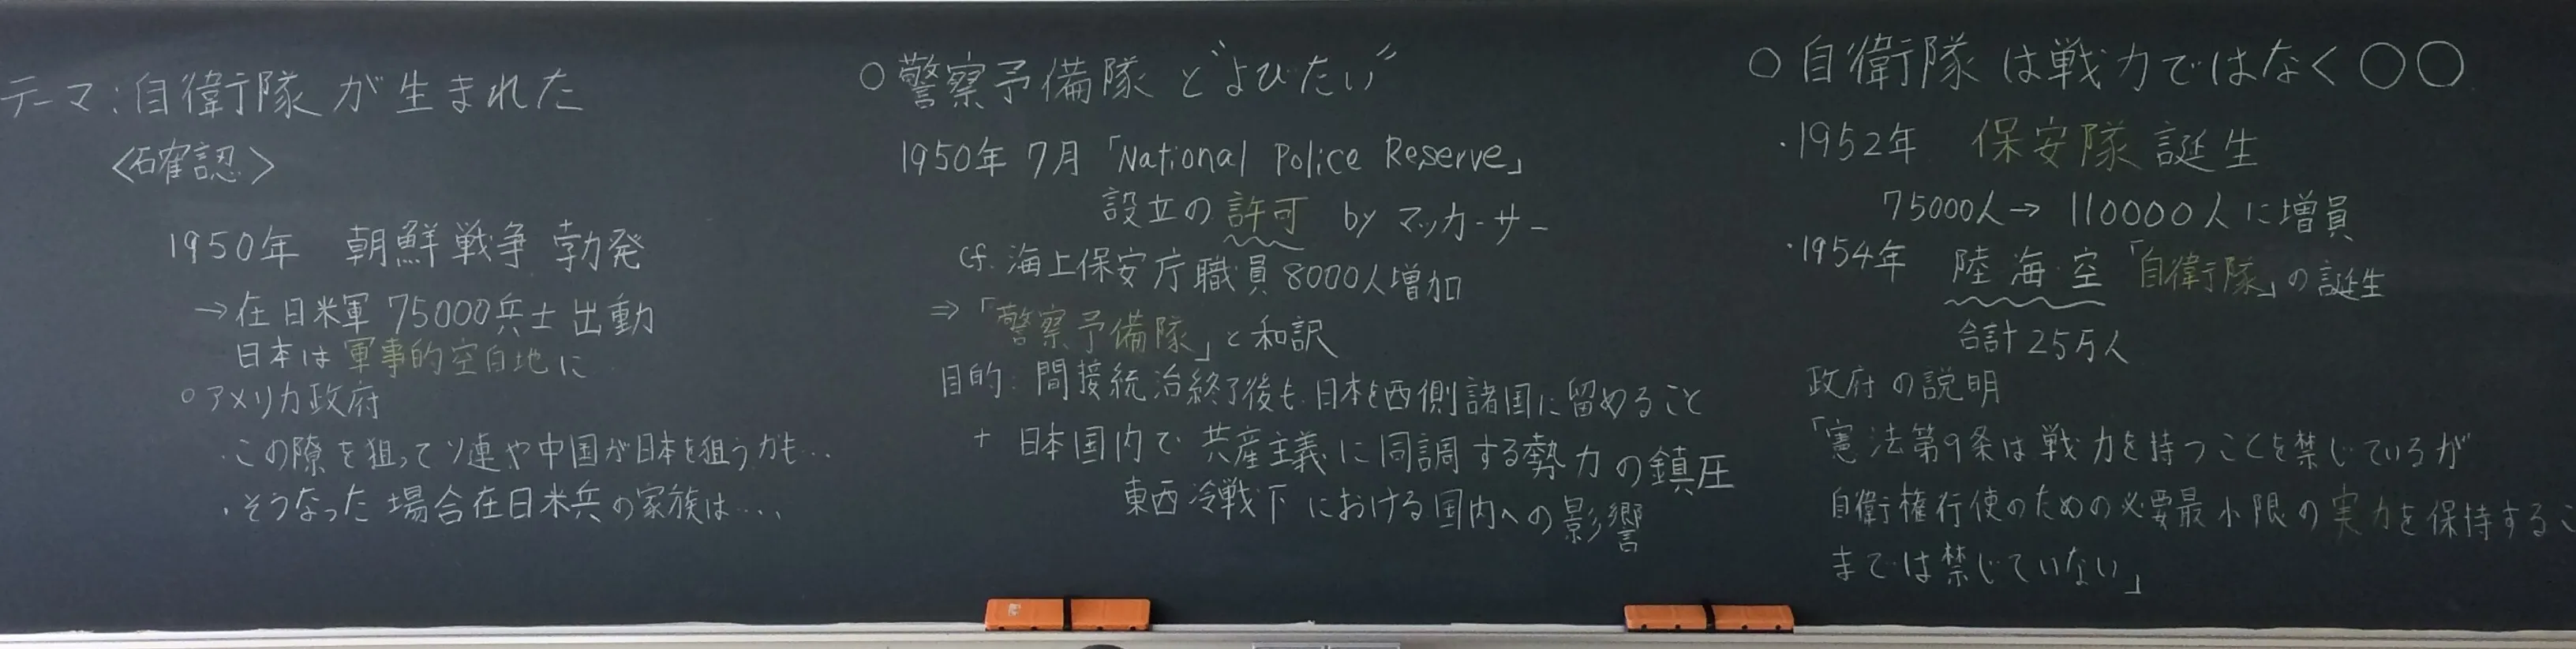 テーマ:自衛隊が生まれた
〈確認〉
1950年 朝鮮戦争勃発
→在日米軍75000兵士出動
日本は軍事的空白地に
○アメリカ政府
・この隙を狙ってソ連や中国が日本を狙うかも…
・そうなった場合在日米兵の家族は….
○警察予備隊と"よびたい"
1950年7月「National Police Reserve」
設立の許可 by マッカーサー
cf. 海上保安庁職員8000人増加
⇒「警察予備隊」と和訳
目的:間接統治終了後も日本を西側諸国に留めること
+ 日本国内で共産主義に同調する勢力の鎮圧
東西冷戦下における国内への影響
○自衛隊は戦力ではなく○○
・1952年 保安隊誕生
75000人→110000人に増員
・1954年 陸海空「自衛隊」の誕生
合計25万人
政府の説明
「憲法第9条は戦力を持つことを禁じているが
自衛権行使のための必要最小限の実力を保持するこ
までは禁じていない」